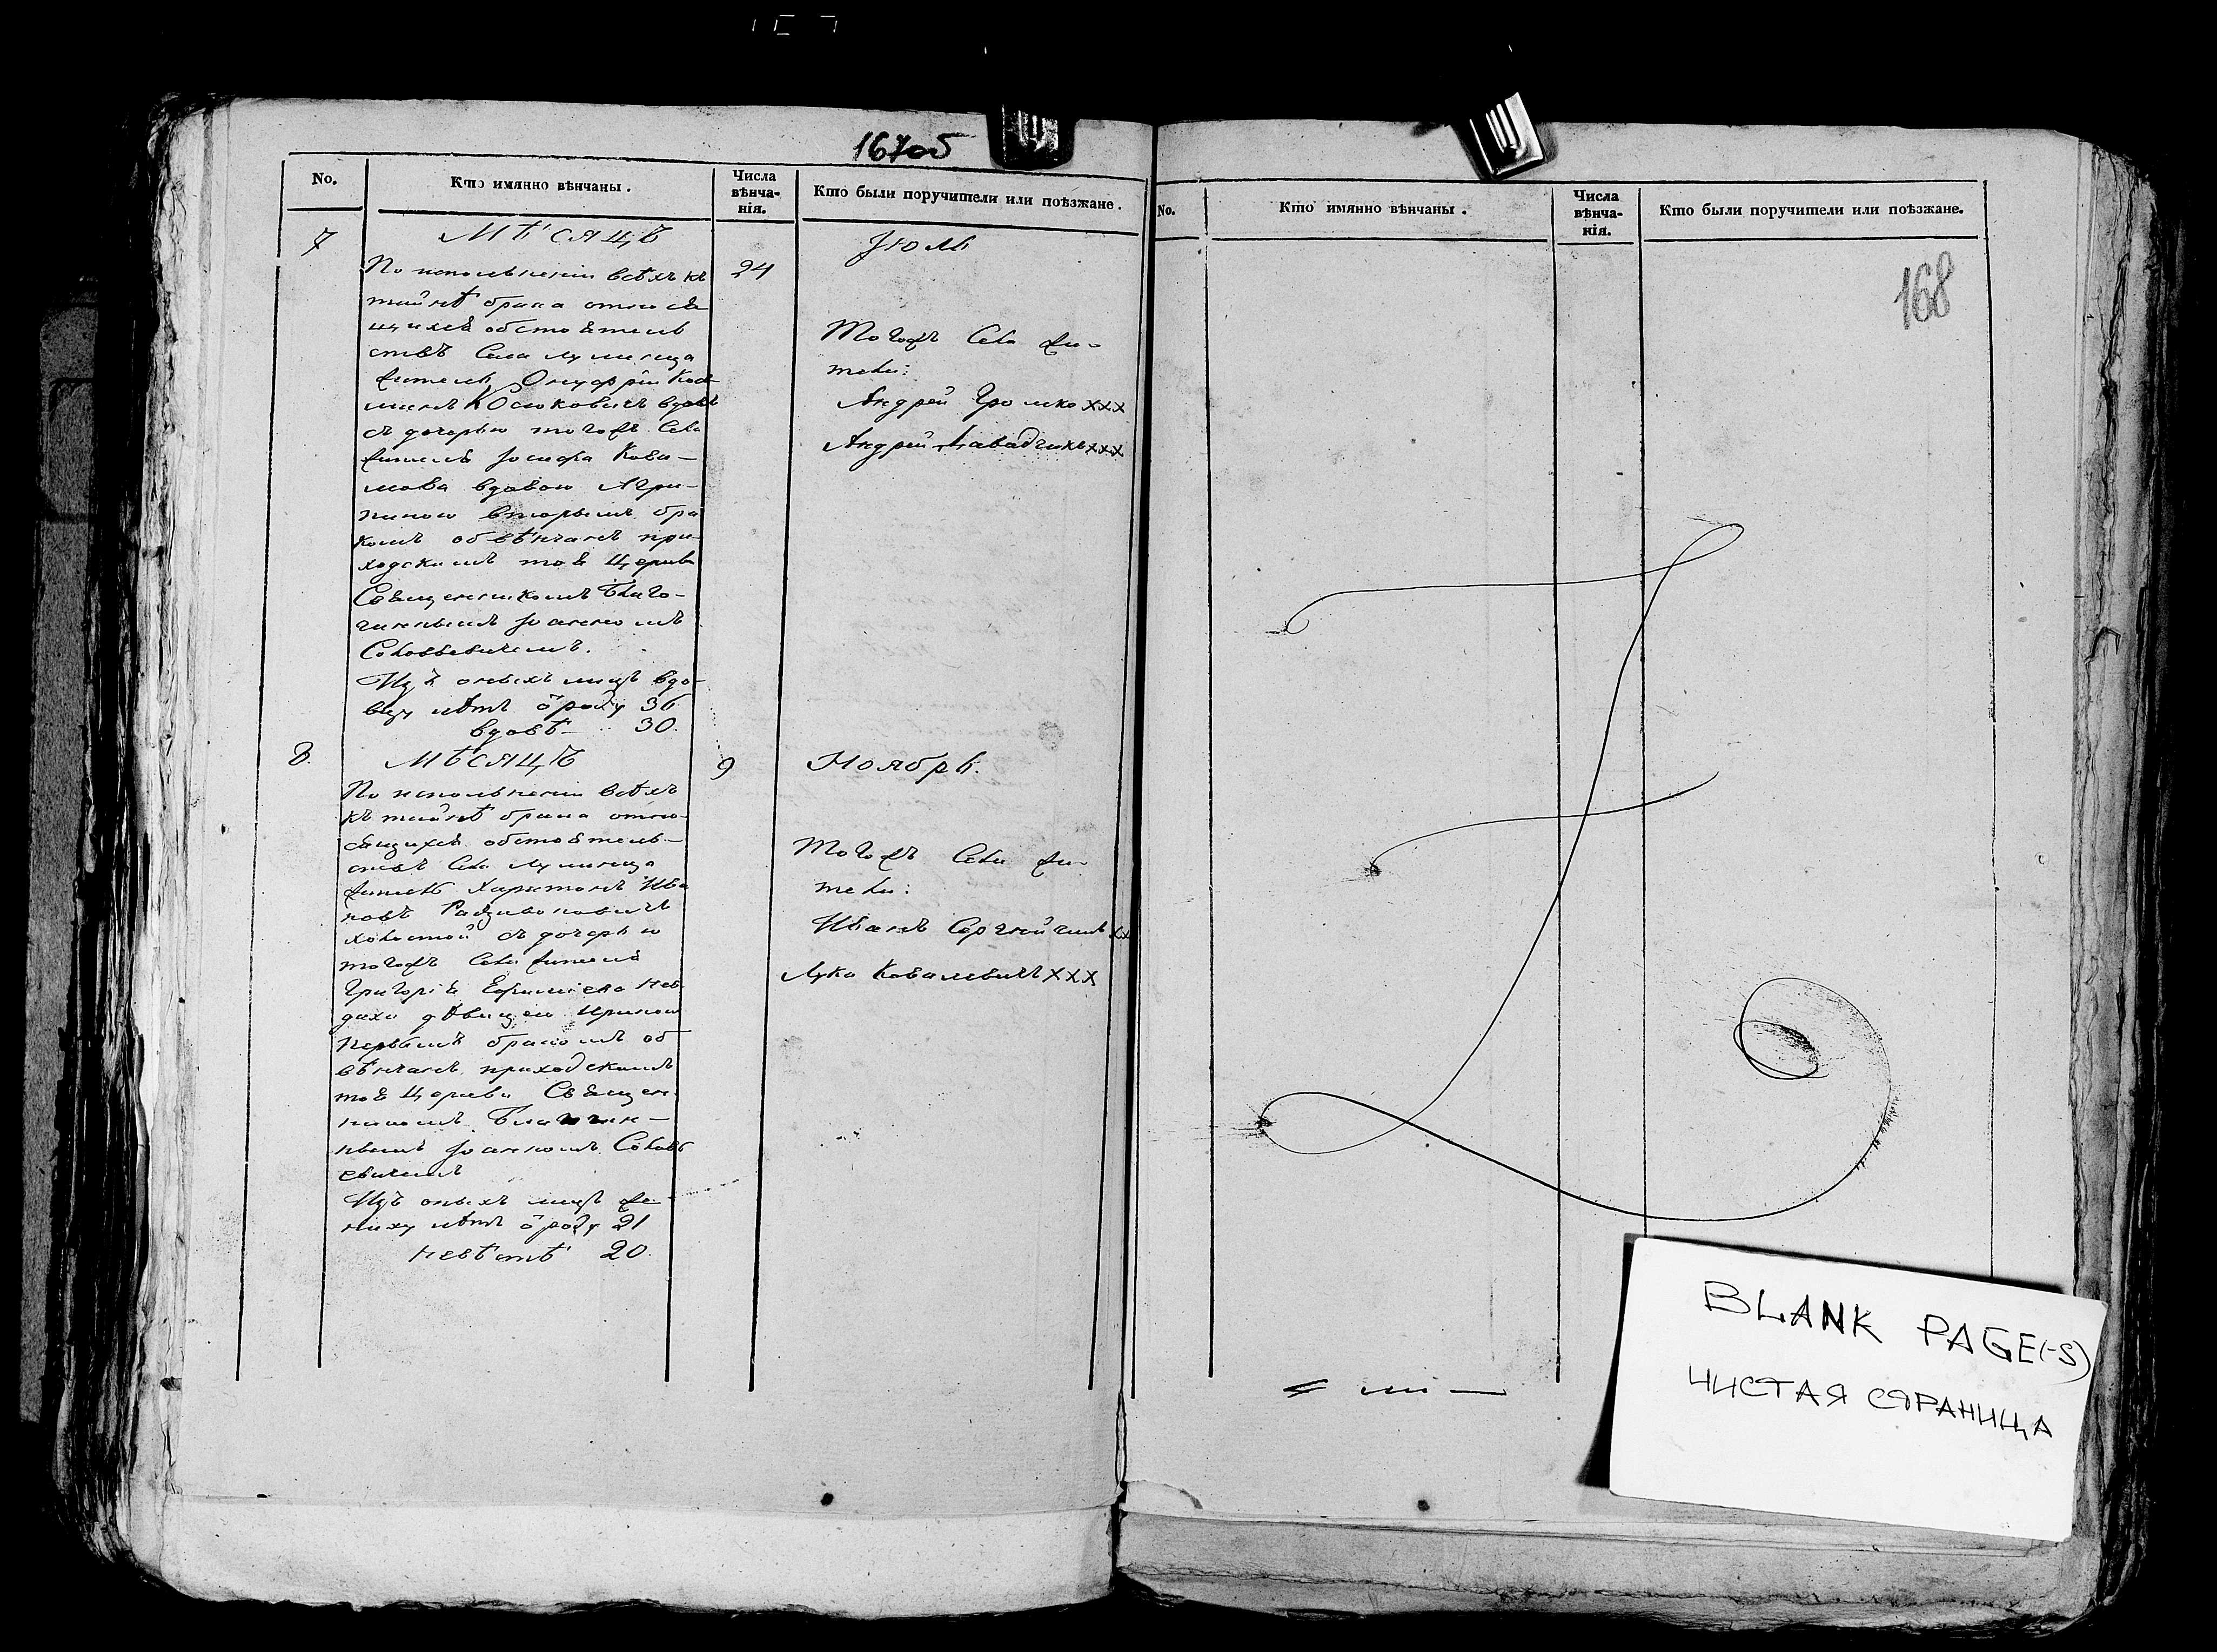 167об
No.
Кто имянно вѣнчаны.
Числа
вѣнча-
нія.
Кто были поручители или поѣзжане.
7
Мѣсяцъ
Іюль
По исполненіи всѣхъ къ
24
тайнѣ брака относя
щихся обстоятель
ствъ Села Лунинца
житель Онуфрій
Осюковичъ вдовъ
съ дочерью тогожъ Села
жителя Іосифа Кова-
лова вдовою Агри-
пиною вторымъ бра
комъ обвѣнчанъ при-
ходскимъ тоя Церкви
Священникомъ Благо-
чиннымъ Іоанномъ
Соловьевичемъ.
Изъ оныхъ лицъ вдо-
вцу лѣтъ ѿроду 36
вдовѣ 30.
Тогожъ Села жи-
тели:
Андрей Громко ххх
Андрей ххх
8.
Мѣсяцъ
9
Ноябрь.
По исполненіи всѣхъ
къ тайнѣ брака отно-
сящихся обстоятель-
ствъ Села Лунинца
житель Харитонъ Ива
новъ Радивоновичъ
холостой съ дочерью
тогожъ Села жителя
Григорія Ефимieва
дѣвицею Ириною
первымъ бракомъ об
вѣнчанъ приходскимъ
тоя Церкви Священ
никомъ Благочин-
нымъ Іоанномъ Соловь
евичемъ
Изъ оныхъ лицъ же-
ниху лѣтъ ѿроду 21
невѣстѣ 20.
Тогожъ Села жи-
тели:
Иванъ хх
Лука Ковалевичъ ххх
No.
Кто имянно вѣнчаны.
Числа
вѣнча-
нія.
Кто были поручители или поѣзжане.
168
BLANK PAGE(-S)
ЧИСТАЯ СТРАНИЦА